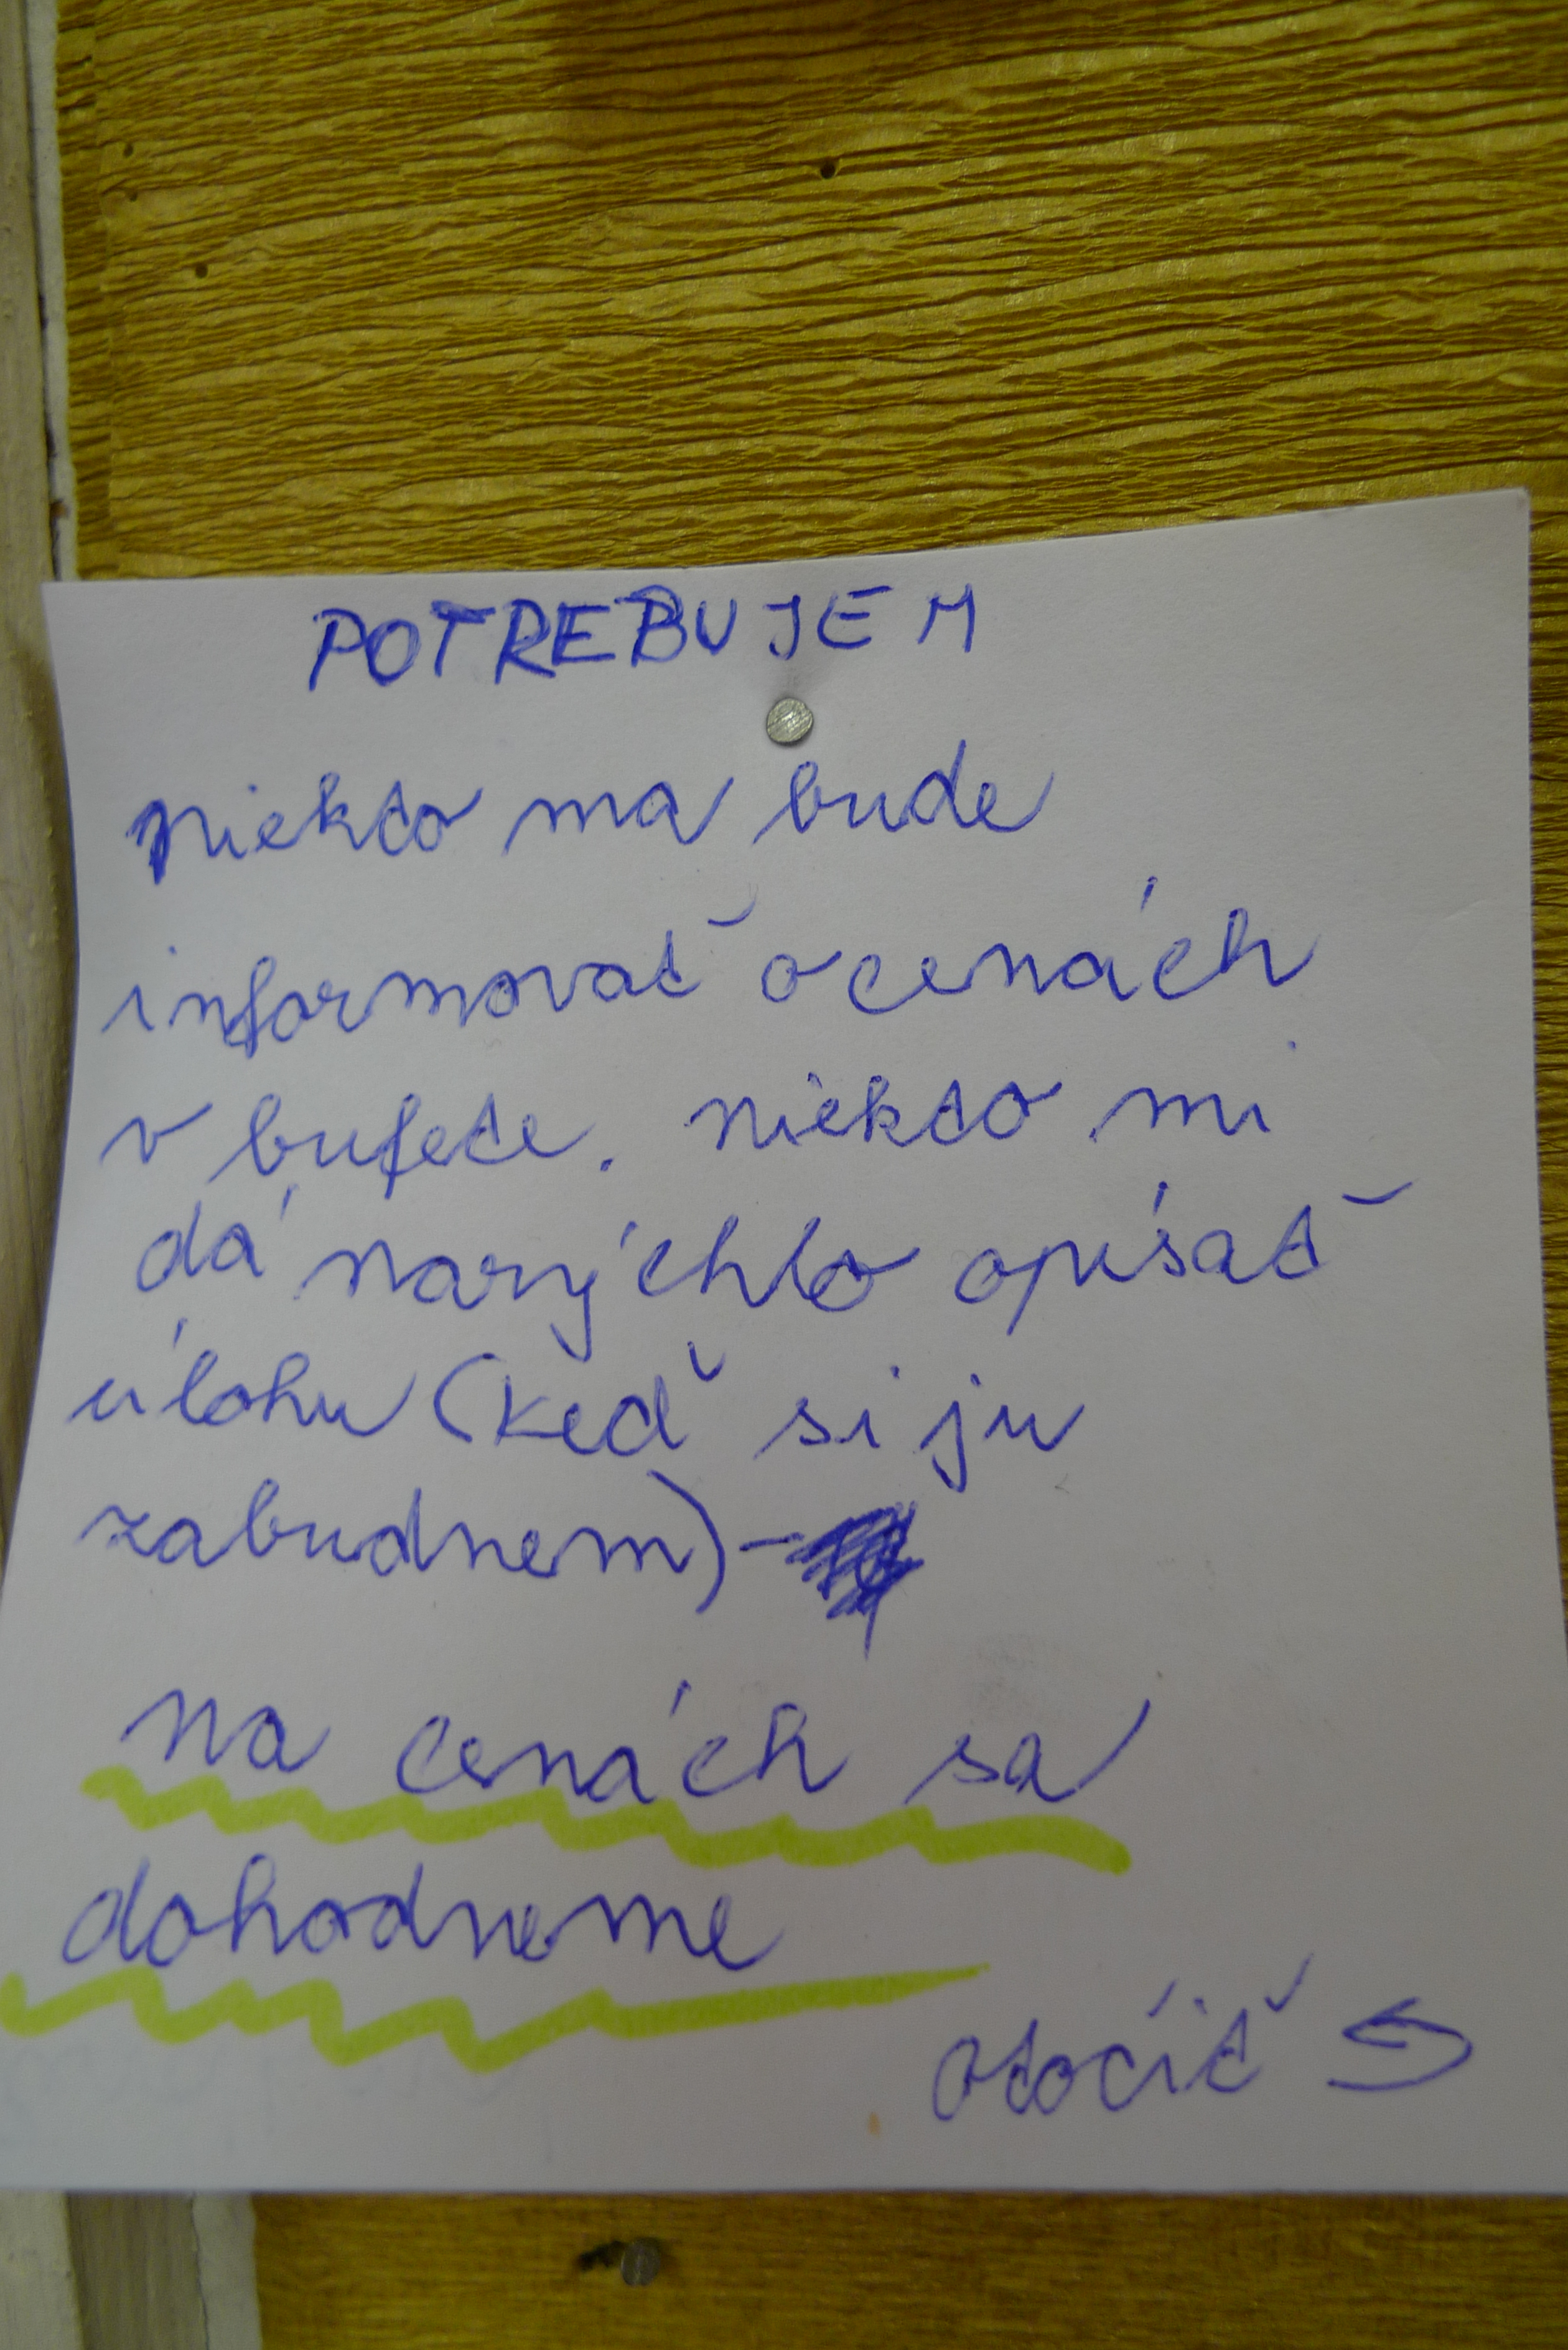 POTREBUJEM
niekto ma bude
informovať o cenách
v bufete. niekto mi
dá narýchlo opísať
úlohu (keď si ju
zabudnem) -
na cenách sa
dohodneme
otočiť